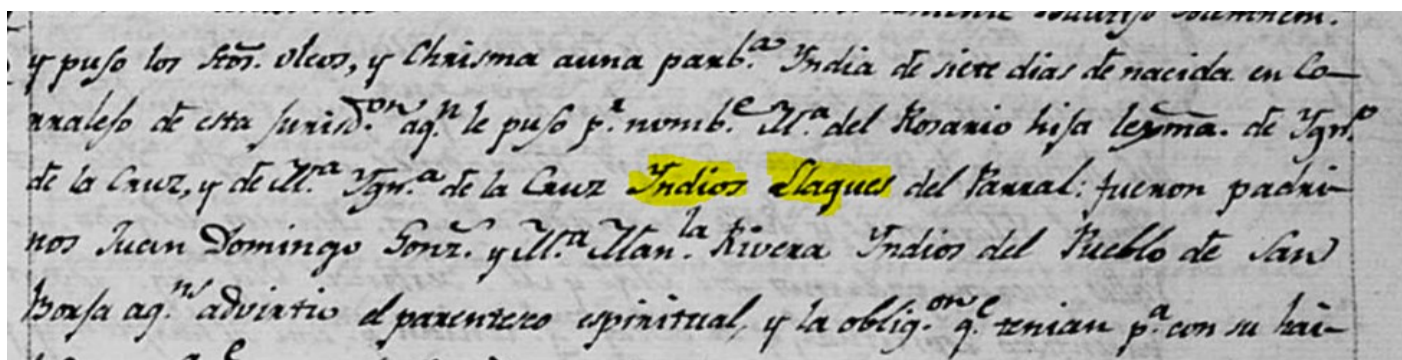 y puso los Stōs. oleos, y Chrisma auna parb.ª Yndia de siete dias de nacida en Co-
rraleso de esta Jurisd.on aq.n le puso p.r nomb.e M.ª del Rosario hija leyma. de Ygn.o
de la Cruz, y de M.ª Ygn.ª de la Cruz Yndios Llaques del Parral: fueron padri-
nos Juan Domingo Gonz. y M.ª Man.la Rivera Yndios del Pueblo de San
Borja aq.n advirtio el parentezo espiritual, y la oblig.on q.e tenian p.ª con su hai-